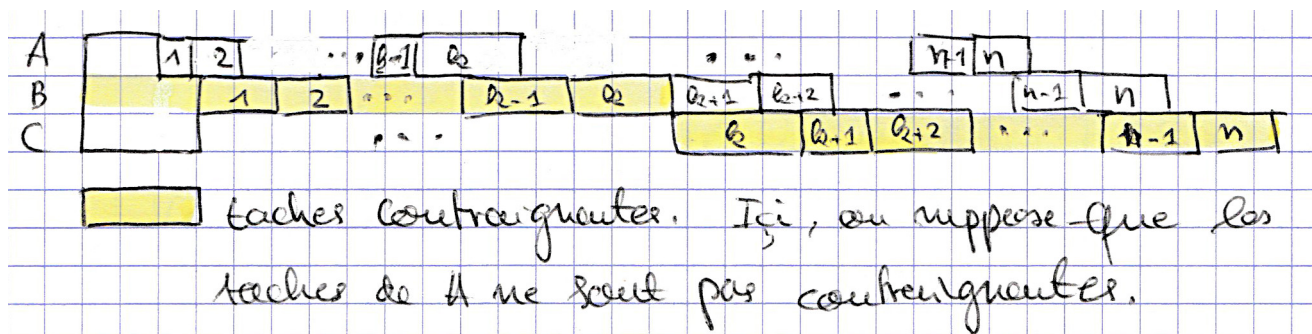 A 1 2 ... k-1 k ... n-1 n
B 1 2 ... k-1 k k+1 k+2 ... n-1 n
C ... k k+1 k+2 ... n-1 n
taches contraignantes. Içi, on suppose que les
taches de A ne sont pas contraignantes.